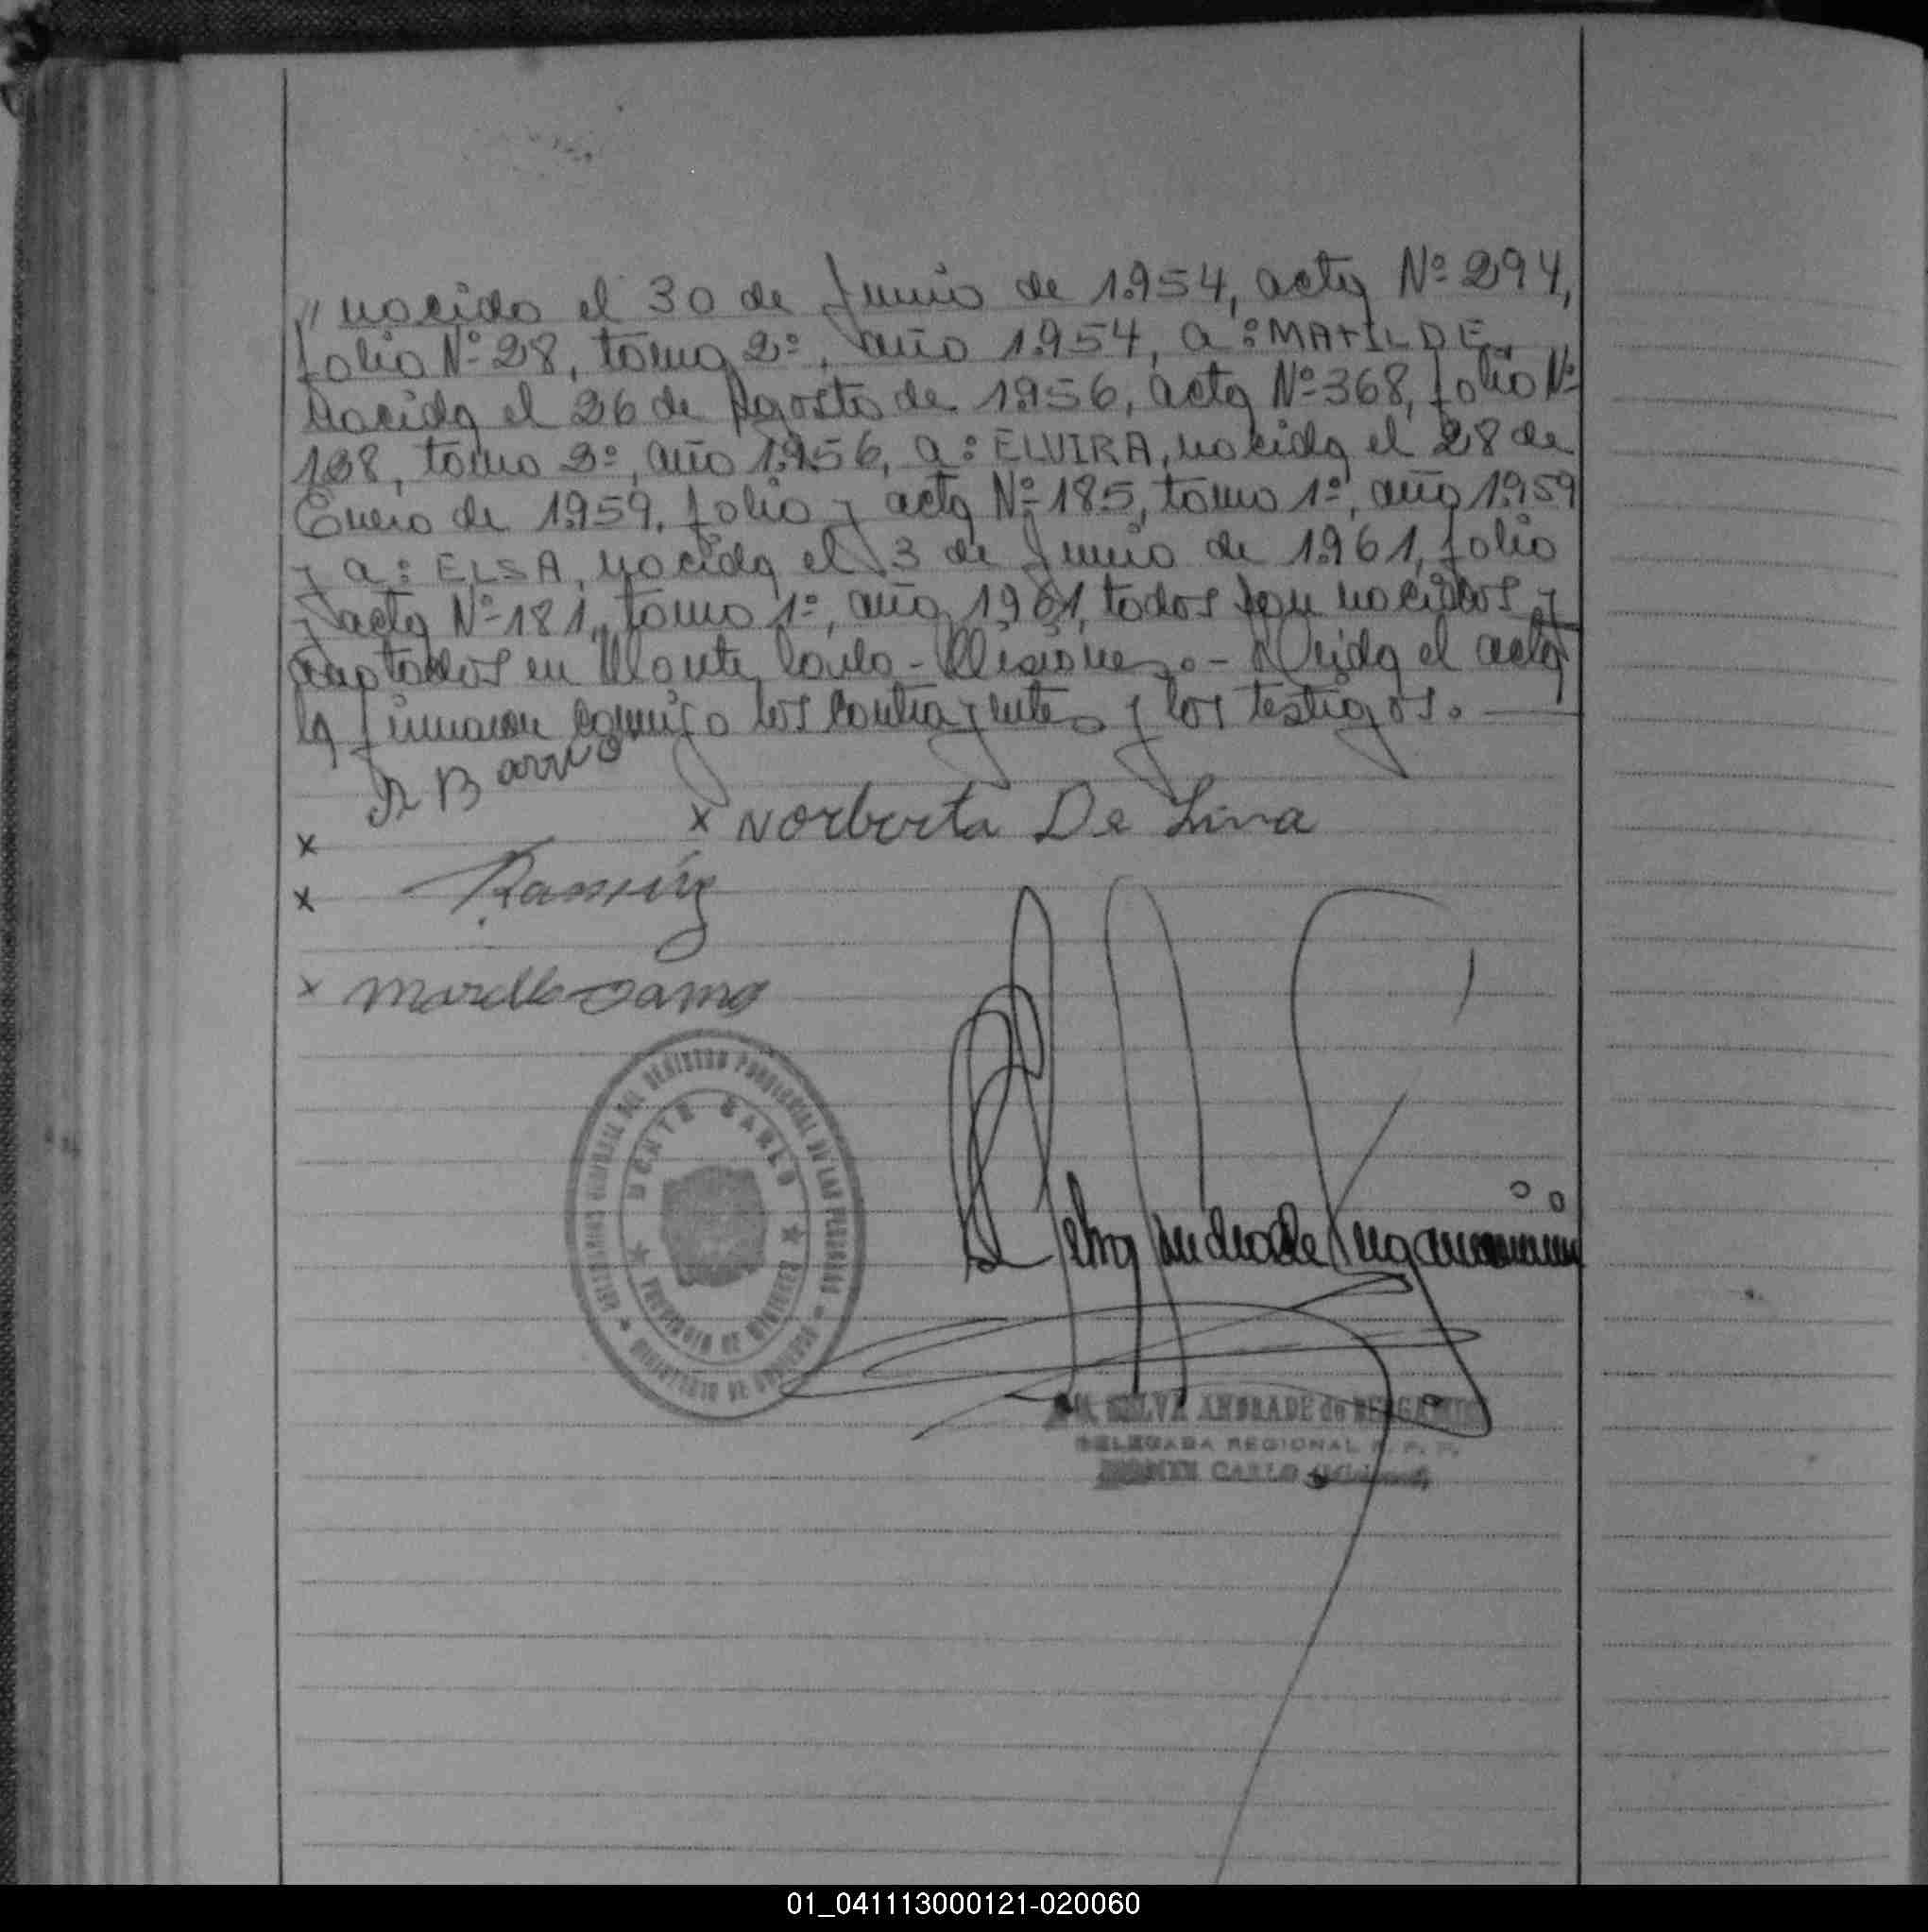 " nacido el 30 de Junio de 1.954, acta Nº 294,
folio Nº 28, tomo 2º, año 1.954, a: MATILDE
nacida el 26 de Agosto de 1.956, acta Nº 368, folio Nº
138, tomo 2º, año 1.956, a: ELVIRA, nacida el 28 de
Enero de 1.959, folio y acta Nº 185, tomo 1º, año 1.959
y a: ELSA, nacida el 3 de Junio de 1.961, folio
y acta Nº 181, tomo 1º, año 1961, todos son nacidos y
anotados en Monte Carlo - Misiones.- Leida el acta
la firmaron conmigo los contrayentes y los testigos.
R Barrio
x Norberta De Lima
x
x Ramírez
x
REGISTRO PROVINCIAL DE LAS PERSONAS
MONTE CARLO
PROVINCIA DE MISIONES
MINISTERIO DE GOBIERNO
SELVA ANDRADE de BERGAMINI
DELEGADA REGIONAL R. P. P.
MONTE CARLO (Misiones)
01_041113000121-020060